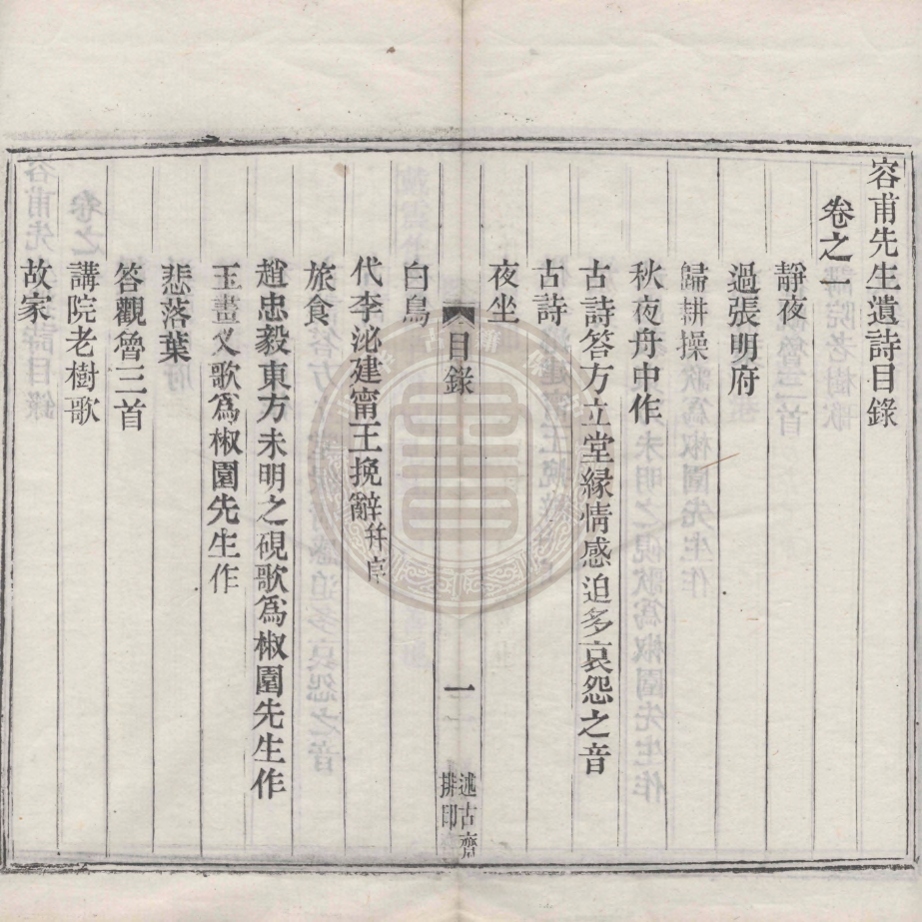 容甫先生遺詩目錄
卷之一
靜夜
過張明府
歸耕操
秋夜舟中作
古詩答方立堂緣情感迫多哀怨之音
古詩
夜坐
目錄
一
述古齋
排印
白鳥
代李泌建甯王挽辭幷序
旅食
趙忠毅東方未明之硯歌為椒園先生作
玉畫叉歌為椒園先生作
悲落葉
答觀魯三首
講院老樹歌
故家